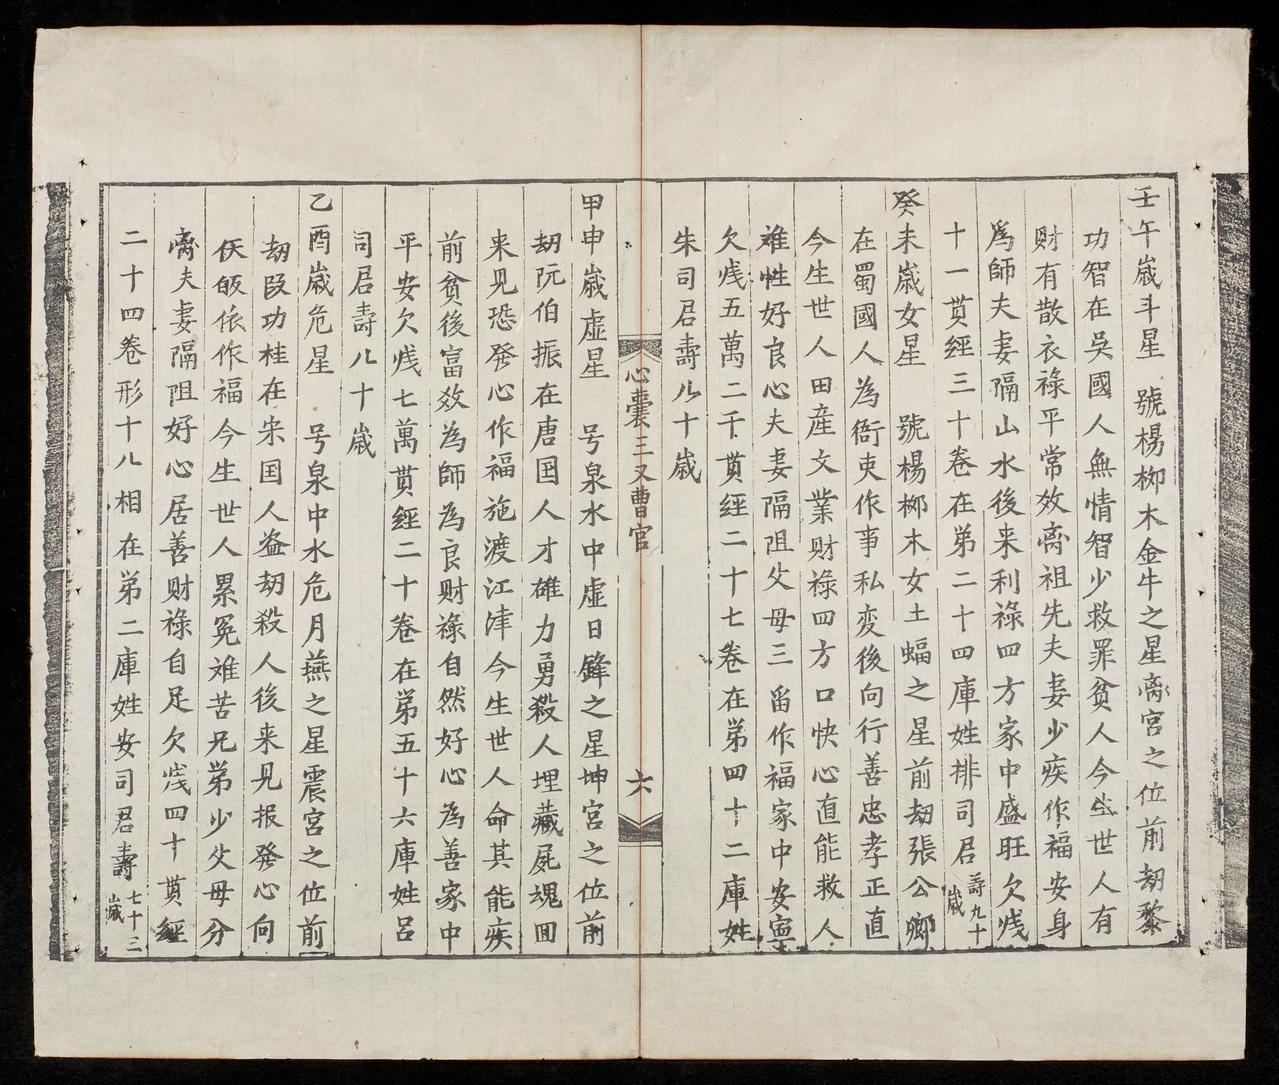 壬午嵗斗星　號楊栁木金牛之星离宮之位前刼黎
功智在吳國人無情智少救罪貧人今生世人有
财有散衣祿平常效离祖先夫妻少疾作福安身
爲師夫妻隔山水後来利祿四方家中盛旺欠㦮
十一貫經三十卷在苐二十四庫姓排司君壽九十嵗
癸未嵗女星　號楊栁木女土蝠之星前刼張公卿
在蜀國人為衙吏作事私変後向行善忠孝正直
今生世人田産文業财祿四方口快心直能救人
难性好良心夫妻隔阻父母三畄作福家中安寧
欠㦮五萬二千貫經二十七卷在苐四十二庫姓
朱司君壽八十嵗
心囊三又曹官　六
甲申嵗虛星　号泉水中虛日鋒之星坤宮之位前
刼阮伯振在唐囯人才雄力勇殺人埋藏屍魂囬
来見恐發心作福施渡江津今生世人命其能疾
前貧後富效為師為良财祿自然好心為善家中
平安欠㦮七萬貫經二十卷在苐五十六庫姓呂
司君壽八十嵗
乙酉嵗危星　号泉中水危月燕之星震宮之位前
刼叚功桂在宋囯人盗刼殺人後来見报發心向
佛皈依作福今生世人累冤难苦兄弟少父母分
离夫妻隔阻好心居善财祿自足欠㦮四十貫經
二十四卷形十八相在苐二庫姓安司君壽七十三嵗